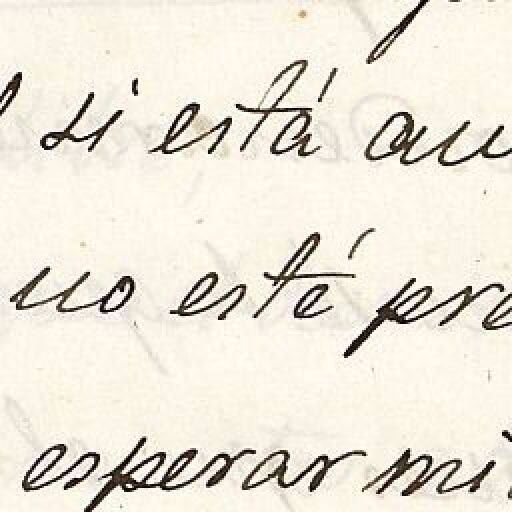 si está au
no esté pre
esperar mi